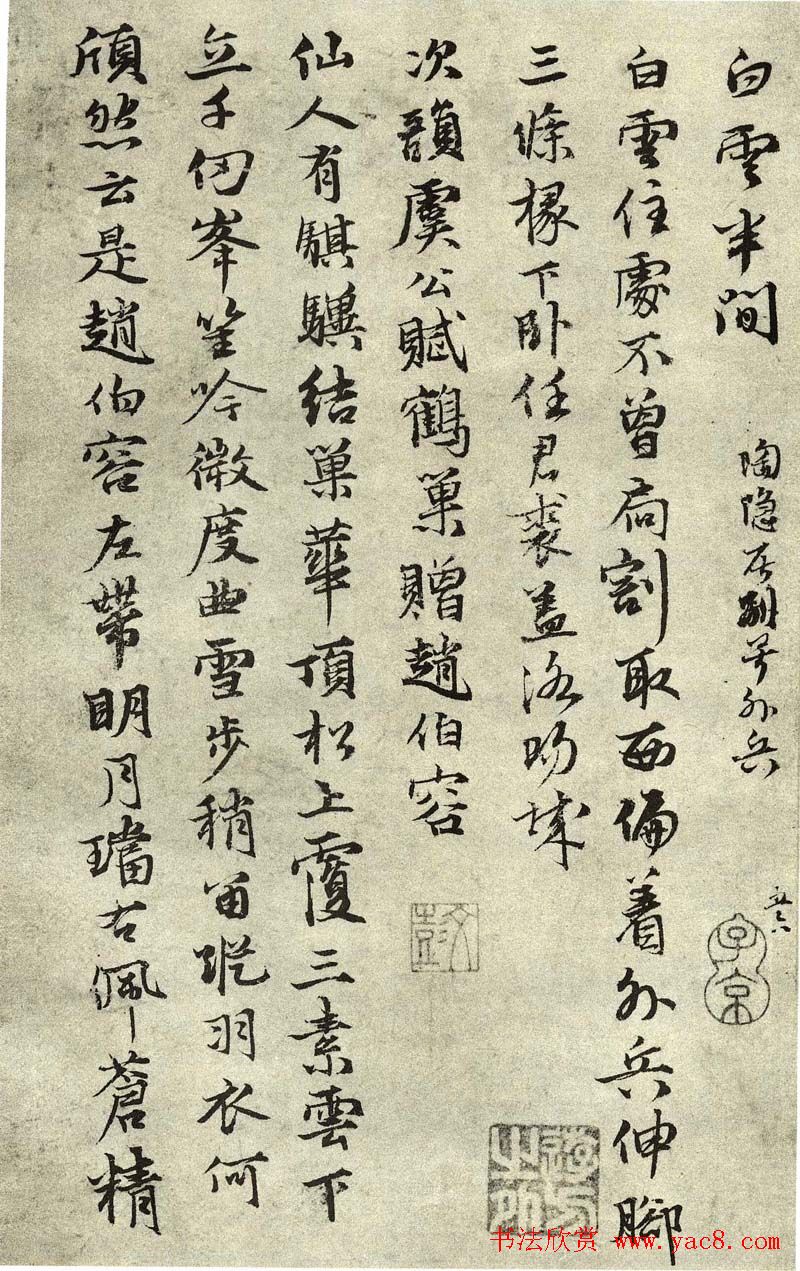 白雲半間
陶隐居別号外兵
白雲住處不曾扃割取西偏着外兵伸腳
三條椽下卧任君裘盖洛陽城
次韻虞公賦鶴巢贈趙伯容
仙人有騏驥結巢華頂松上覆三素雲下
立千仞峯笙吟微度曲雪步稍留蹤羽衣何
頎然云是趙伯容左帶明月璫右佩蒼精
子京
书法欣赏 www.yac8.com